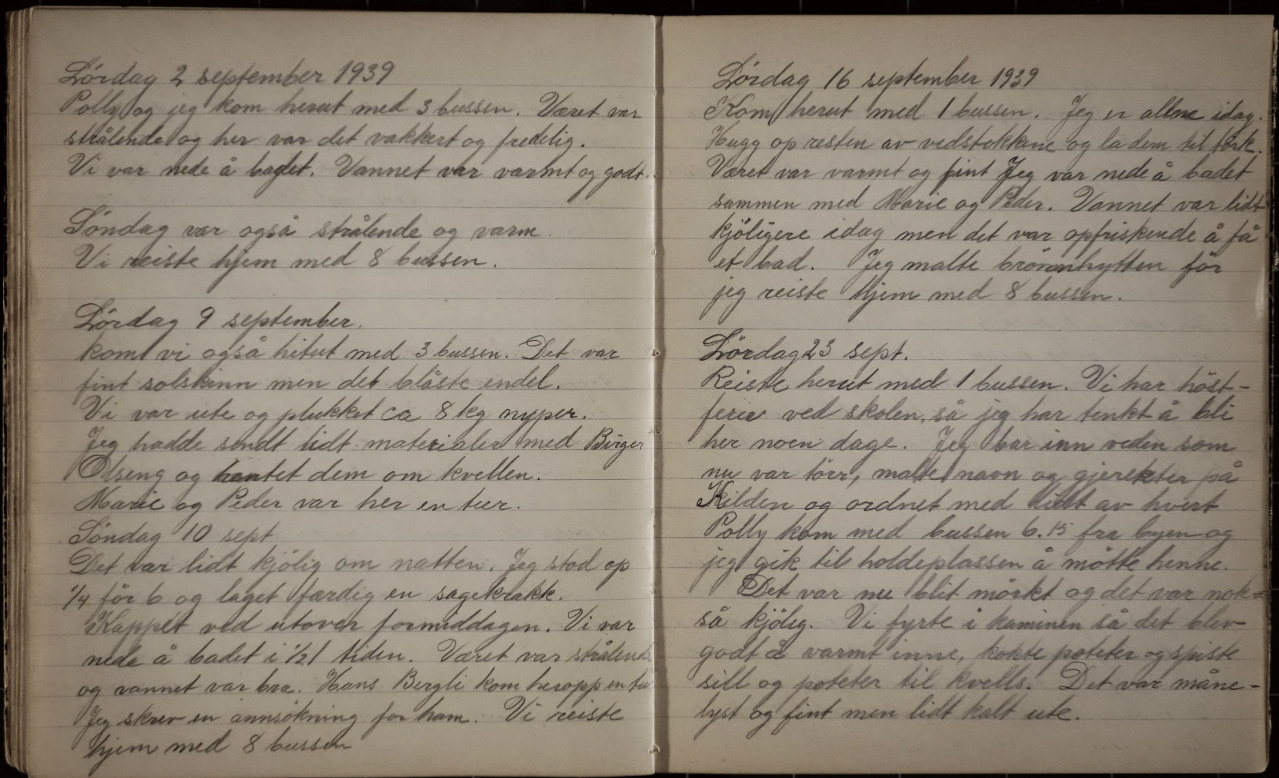 Lørdag 2 september 1939
Polly og jeg kom herut med 3 bussen. Været var
strålende og her var det vakkert og fredelig.
Vi var nede å badet. Vannet var varmt og godt.
Søndag var også strålende og varm.
Vi reiste hjem med 8 bussen.
Lørdag 9 september.
kom vi også hitut med 3 bussen. Det var
fint solskinn men det blåste endel.
Vi var ute og plukket ca 8 kg nyper.
Jeg hadde sendt lidt materialer med Birger
Olseng og hentet dem om kvellen.
Marie og Peder var her en tur.
Søndag 10 sept
Det var lidt kjølig om natten. Jeg stod op
1/4 før 6 og laget færdig en sagekrakk.
Kappet ved utover formiddagen. Vi var
nede å badet i 1/2 1 tiden. Været var strålende
og vannet var bra. Hans Bergli kom heropp en tur
Jeg skrev en annsøkning for ham. Vi reiste
hjem med 8 bussen
Lørdag 16 september 1939
Kom herut med 1 bussen. Jeg er allene idag.
Hugg op resten av vedstokkene og la dem til tørk.
Været var varmt og fint Jeg var nede å badet
sammen med Marie og Peder. Vannet var lidt
kjøligere idag men det var opfriskende å få
et bad. Jeg malte brønnhytten før
jeg reiste hjem med 8 bussen.
Lørdag 23 sept.
Reiste herut med 1 bussen. Vi har høst-
ferie ved skolen, så jeg har tenkt å bli
her noen dage. Jeg bar inn veden som
nu var tørr, malte navn og på
Kilden og ordnet med lidt av hvert
Polly kom med bussen 6.15 fra byen og
jeg gik til holdeplassen å møtte henne.
Det var nu blit mørkt og det var nok-
så kjølig. Vi fyrte i kaminen så det blev
godt å varmt inne, kokte poteter og spiste
sill og poteter til kvells. Det var måne-
lyst og fint men lidt kalt ute.